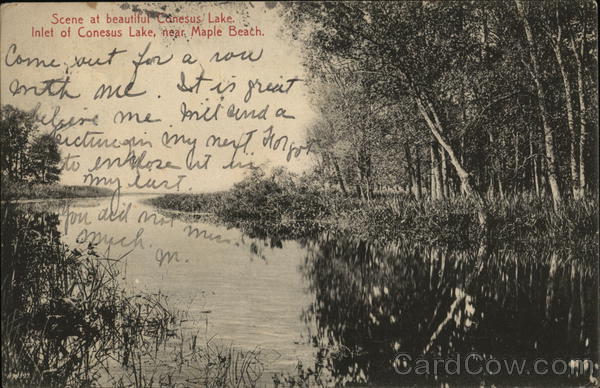 Scene at beautiful Conesus Lake.
Inlet of Conesus Lake, near Maple Beach.
Come out for a row
with me. It is great
believe me. Will send a
picture in my next. Forgot
to enclose it in
my last.
You did not miss
much.
M.
CardCow.com